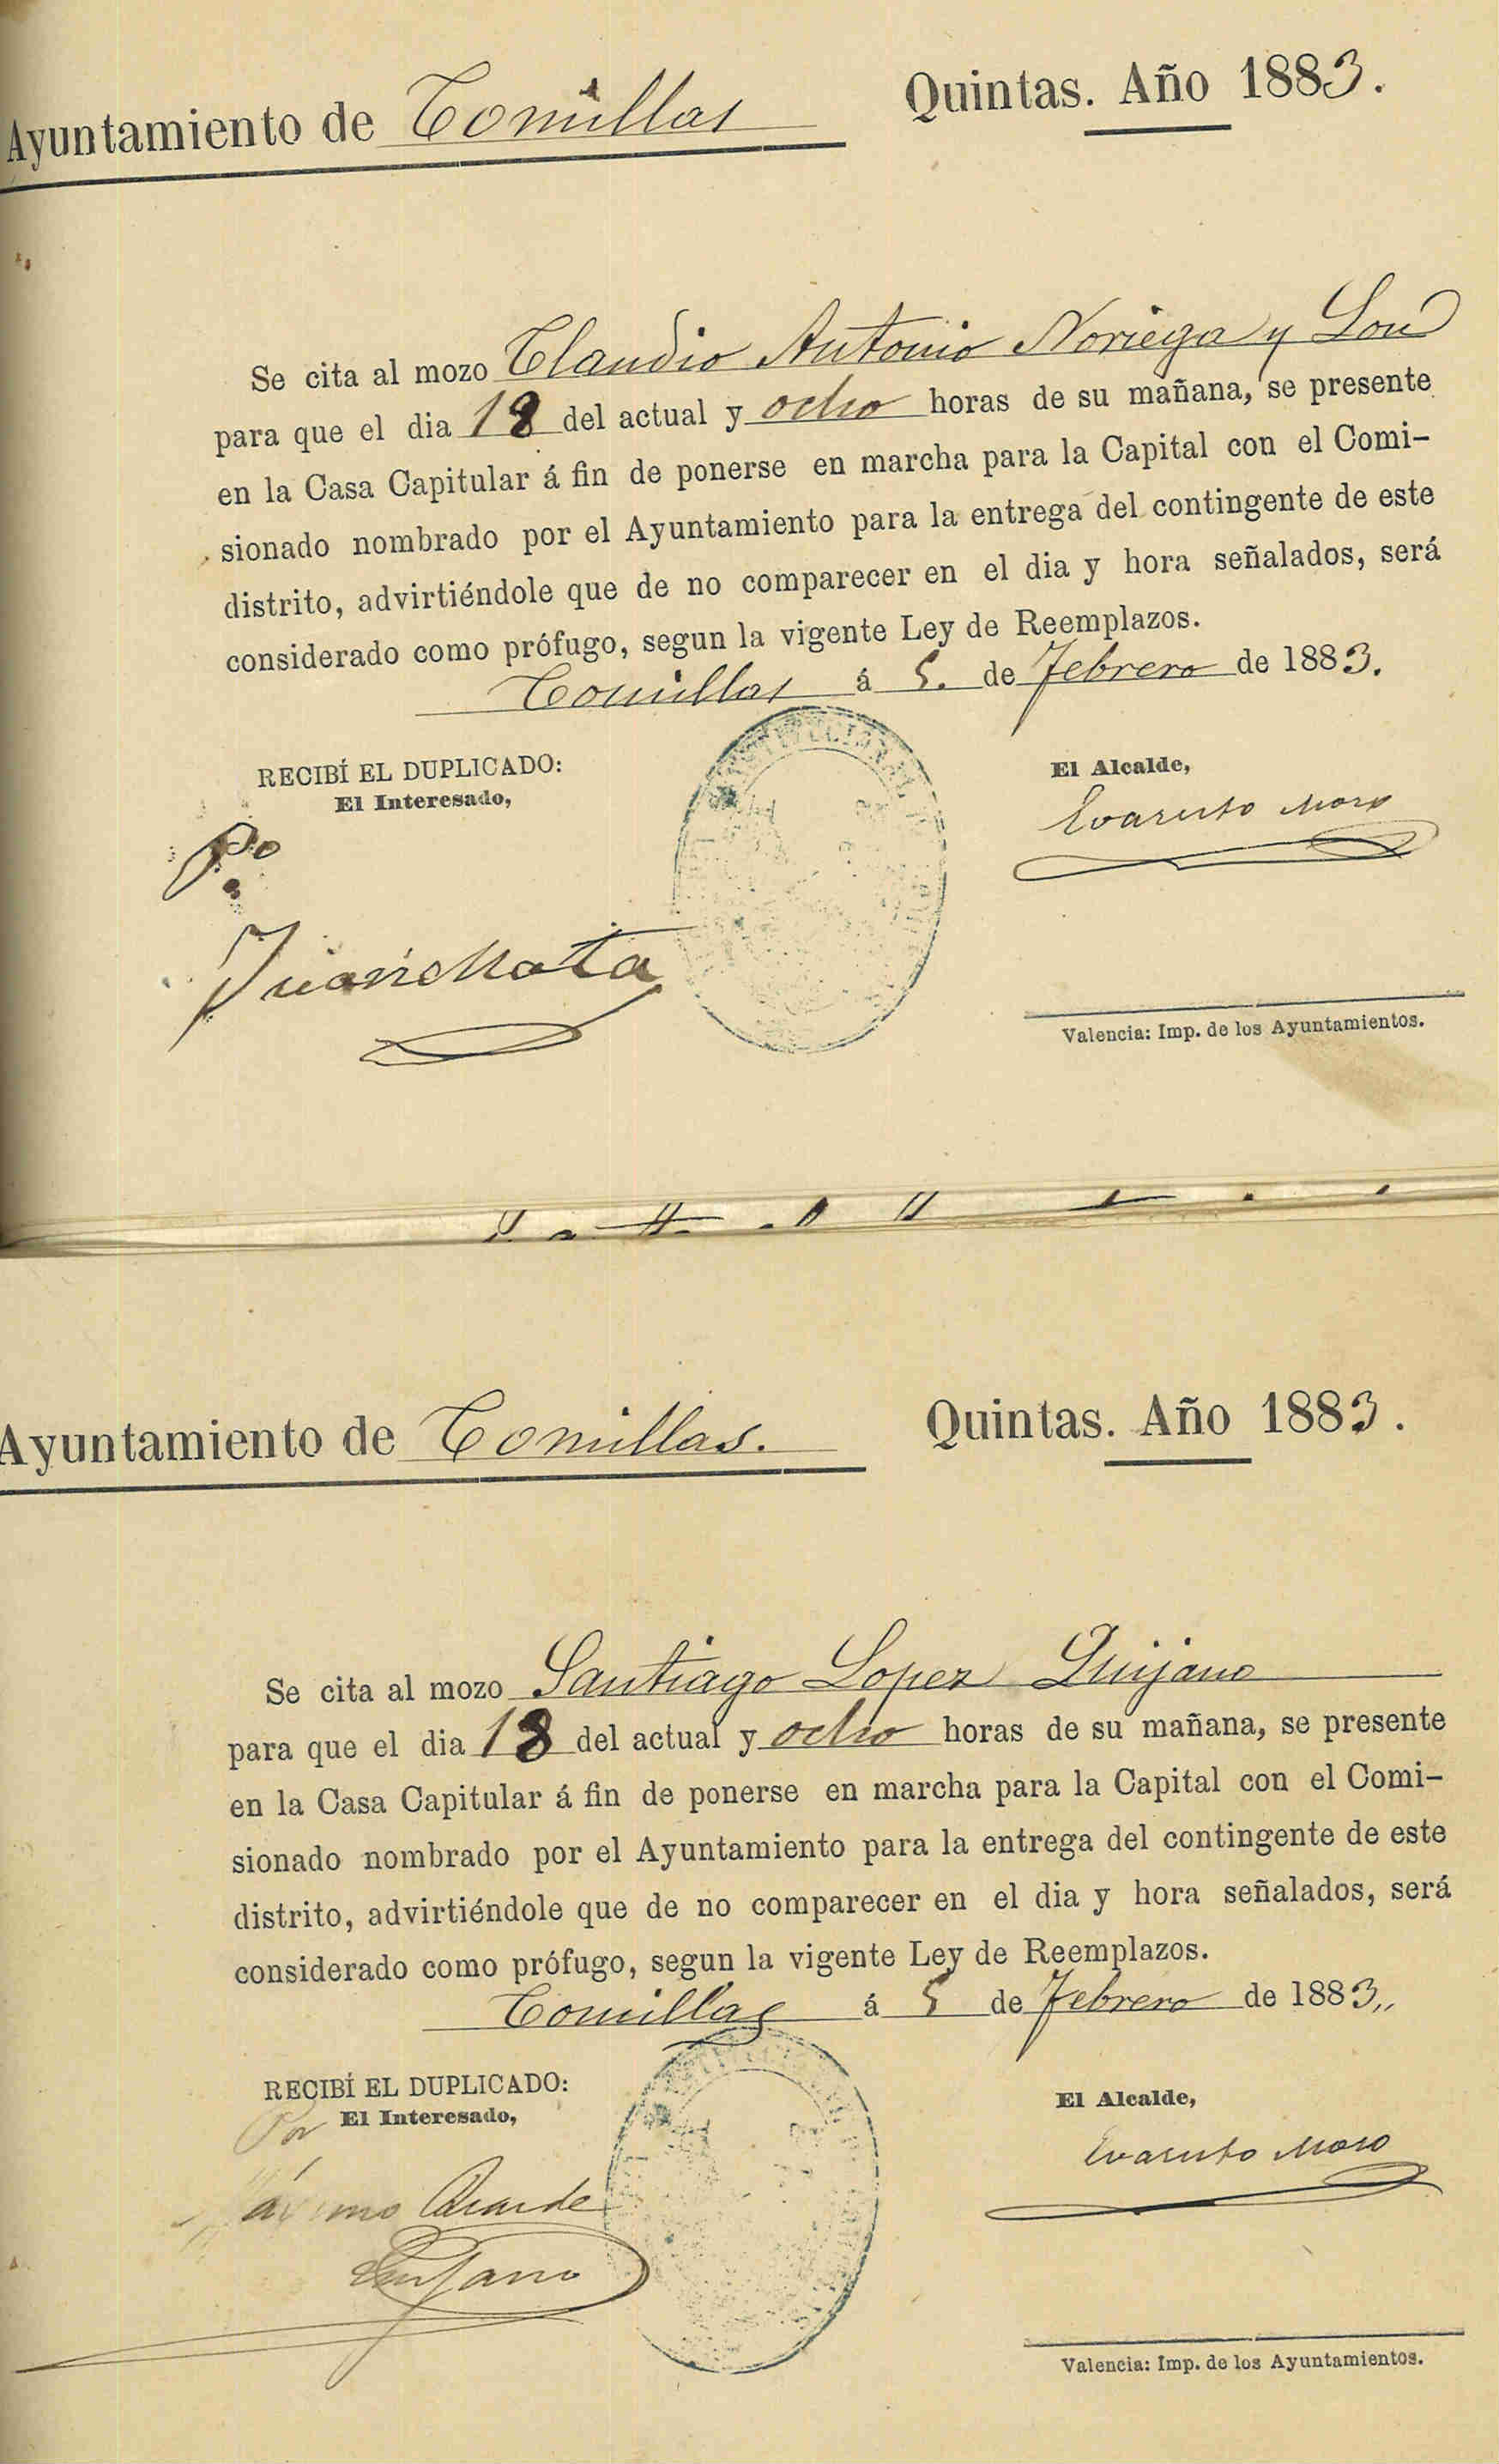 Ayuntamiento de Comillas
Quintas. Año 1883.
Se cita al mozo Claudio Antonio Noriega y Lon
para que el dia 18 del actual y ocho horas de su mañana, se presente
en la Casa Capitular á fin de ponerse en marcha para la Capital con el Comi-
sionado nombrado por el Ayuntamiento para la entrega del contingente de este
distrito, advirtiéndole que de no comparecer en el dia y hora señalados, será
considerado como prófugo, segun la vigente Ley de Reemplazos.
Comillas á 5. de Febrero de 1883.
RECIBÍ EL DUPLICADO:
El Interesado,
El Alcalde,
Evaristo Moro
Po
Juan Mata
Valencia: Imp. de los Ayuntamientos.
Ayuntamiento de Comillas.
Quintas. Año 1883.
Se cita al mozo Santiago Lopez Quijano
para que el dia 18 del actual y ocho horas de su mañana, se presente
en la Casa Capitular á fin de ponerse en marcha para la Capital con el Comi-
sionado nombrado por el Ayuntamiento para la entrega del contingente de este
distrito, advirtiéndole que de no comparecer en el dia y hora señalados, será
considerado como prófugo, segun la vigente Ley de Reemplazos.
Comillas á 5 de Febrero de 1883,,
RECIBÍ EL DUPLICADO:
El Interesado,
El Alcalde,
Por
Evaristo Moro
Quijano
Valencia: Imp. de los Ayuntamientos.